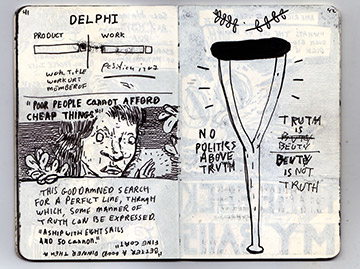 41
DELPHI
PRODUCT
WORK
WORK, TITLE
WORKURT
MEMBEROF
"POOR PEOPLE CANNOT AFFORD
CHEAP THINGS"
THIS GODDAMNED SEARCH
FOR A PERFECT LINE, THROUGH
WHICH, SOME MANNER OF
TRUTH CAN BE EXPRESSED.
"A SHIP WITH EIGHT SAILS
AND 50 CANNON."
"BETTER A GOOD DINNER THAN A
FINE COAT"
NO
POLITICS
ABOVE
TRUTH
TRUTH
IS
BEUTY
BEUTY
IS NOT
TRUTH